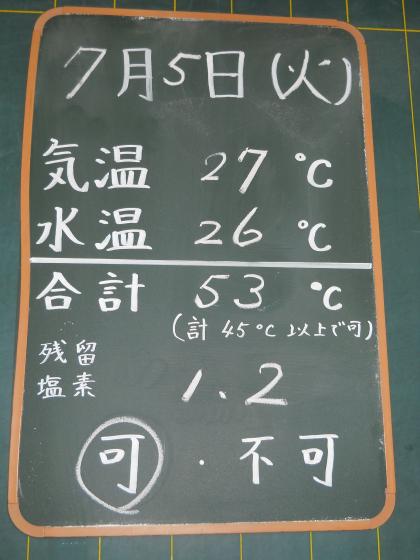 7月5日(火)
気温 27 ℃
水温 26 ℃
合計 53 ℃
(計 45℃ 以上で可)
残留
塩素 1.2
可 ・ 不可